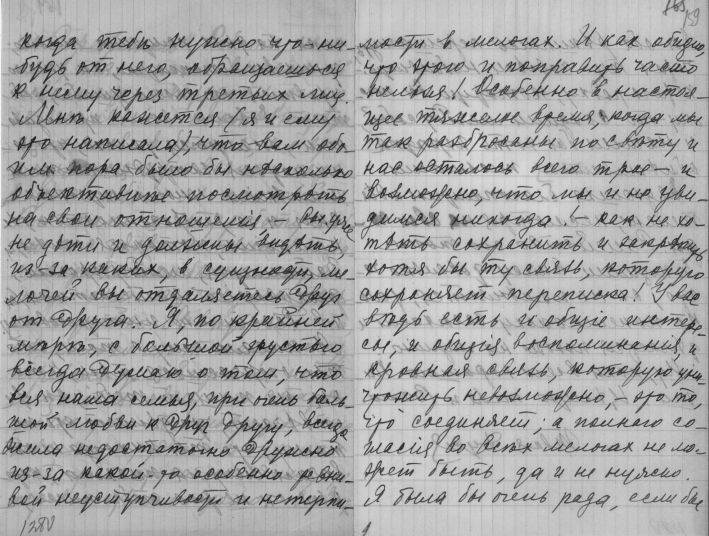 когда тебѣ нужно что-ни-
будь от него, обращаешься
к нему через третьих лиц.
Мнѣ кажется (я и ему
это написала), что вам обо-
им пора было бы нѣсколько
объективнѣе посмотрѣть
на свои отношенія, – вы уже
не дѣти и должны видѣть,
из-за каких, в сущности, ме-
лочей вы отдаляетесь друг
от друга. Я, по крайней
мѣрѣ, с большой грустью
всегда думаю о том, что
вся наша семья, при очень боль-
шой любви к друг другу, всегда
жила недостаточно дружно
из-за какой-то особенно ревни-
вой неуступчивости и нетерпи-
1280
159
мости в мелочах. И как обидно,
что этого и поправить часто
нельзя! Особенно в настоя-
щее тяжелое время, когда мы
так разбросаны по свѣту и
нас осталось всего трое – и
возможно, что мы и не уви-
димся никогда – как не хо-
тѣть сохранить и закрѣпить
хотя бы ту связь, которую
сохраняет переписка! У вас
вѣдь есть и общіе интере-
сы, и общія воспоминанія, и
кровная связь, которую уни-
чтожить невозможно, – это то,
что соединяет; а полного со-
гласія во всѣх мелочах не мо-
жет быть, да и не нужно.
Я была бы очень рада, если бы